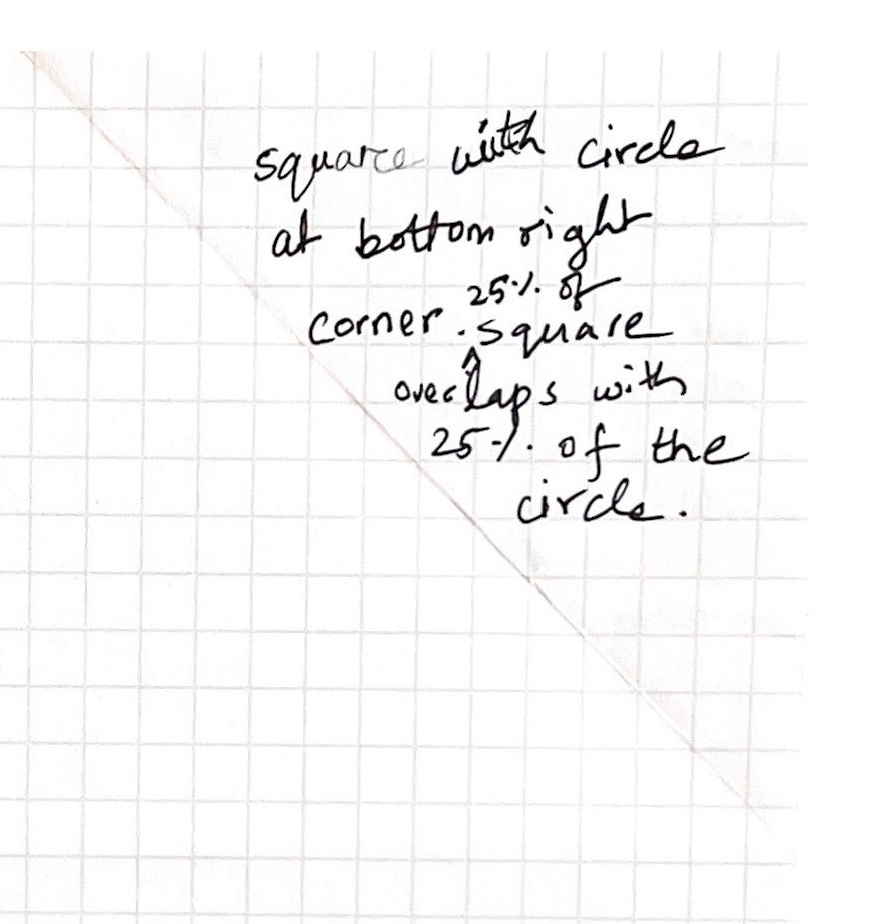 square with circle
at bottom right
corner. 25% of square
overlaps with
25%. of the
circle.